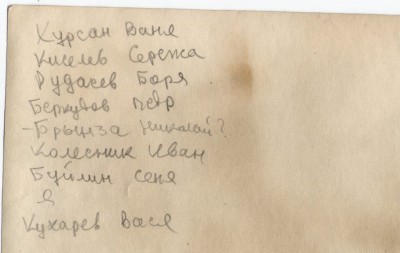 Курсан Ваня
Киселев Сережа
Рудасев Боря
Беркутов Петр
-Брынза Николай?
Колесник Иван
Буйлин Сеня
Я
Кухарев Вася